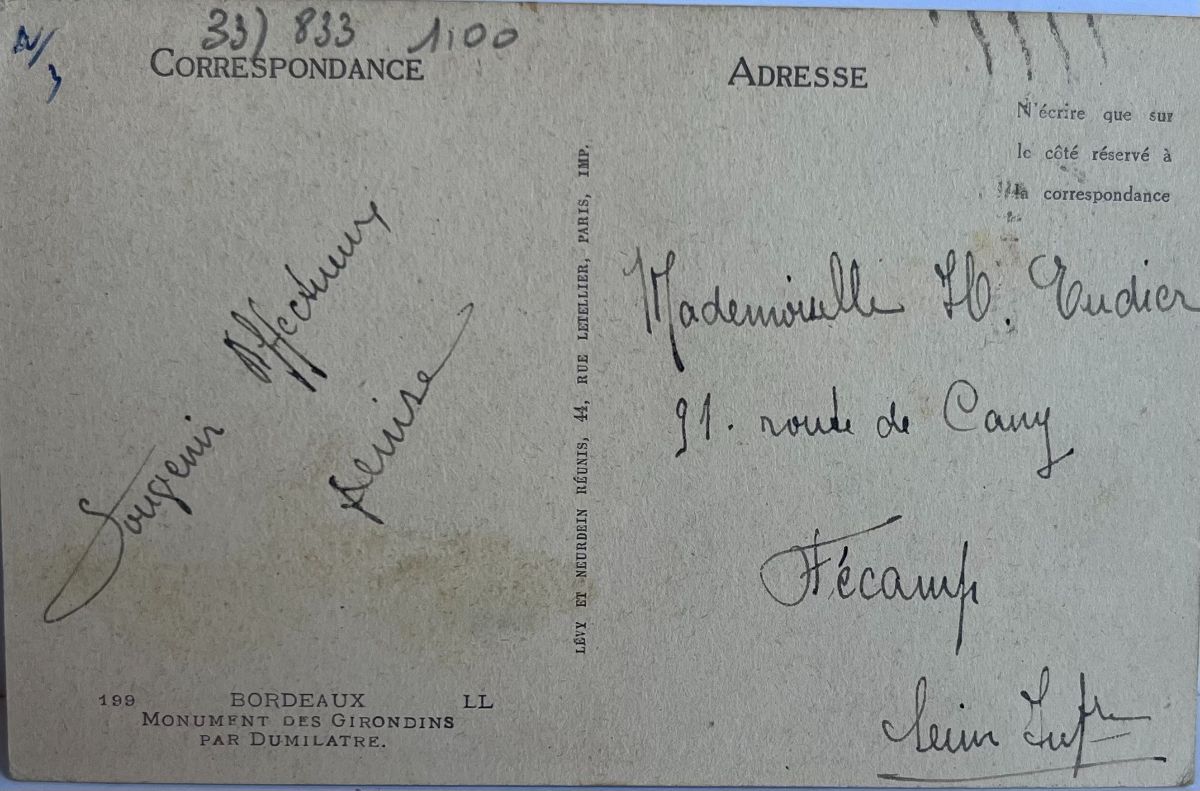 33) 833 1,00
CORRESPONDANCE
Souvenir Affectueux
Denise
199 BORDEAUX LL
MONUMENT DES GIRONDINS
PAR DUMILATRE.
LÉVY ET NEURDEIN RÉUNIS, 44, RUE LETELLIER, PARIS, IMP.
ADRESSE
N'écrire que sur
le côté réservé à
la correspondance
Mademoiselle H. Eudier
91. route de Cany
Fécamp
Seine Infre